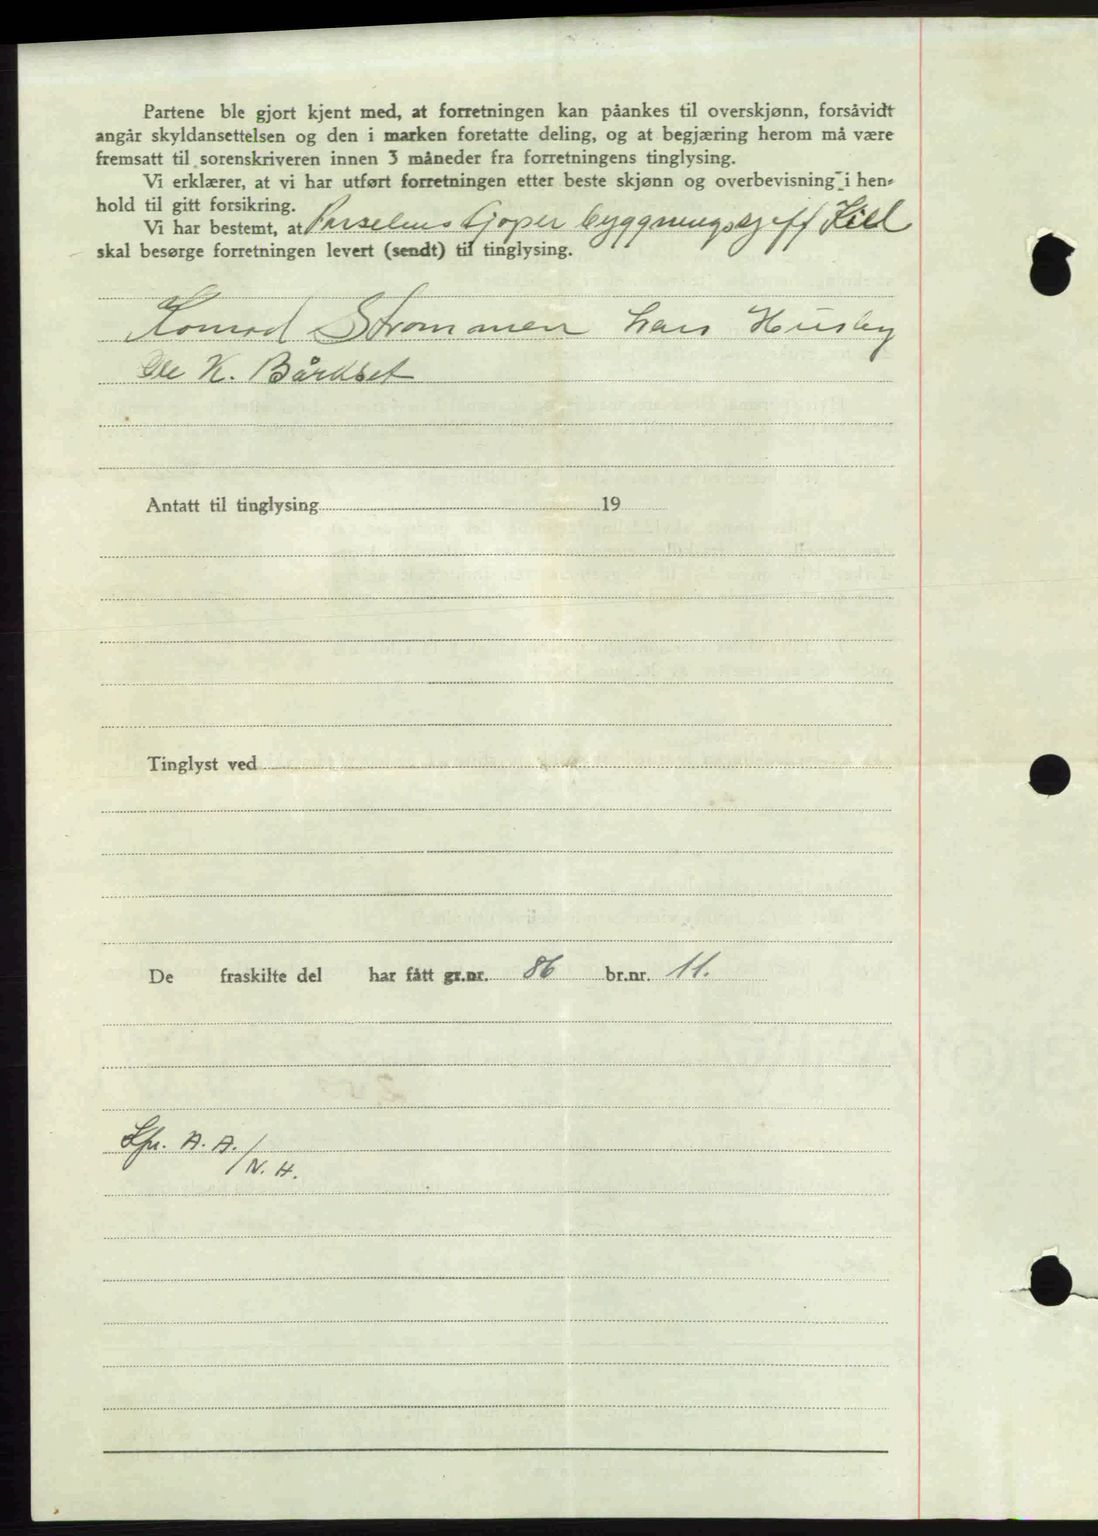 Partene ble gjort kjent med, at forretningen kan påankes til overskjønn, forsåvidt
angår skyldansettelsen og den i marken foretatte deling, og at begjæring herom må være
fremsatt til sorenskriveren innen 3 måneder fra forretningens tinglysing.
Vi erklærer, at vi har utført forretningen etter beste skjønn og overbevisning i hen-
hold til gitt forsikring.
Vi har bestemt, at Parselens kjøper byggningssjeff Kill
skal besørge forretningen levert (sendt) til tinglysing.
Konrad Strømmen Lars Husby
Ole K. Bårdset
Antatt til tinglysing 19
Tinglyst ved
De fraskilte del har fått gr.nr. 86 br.nr. 11.
A. A.
/N. H.